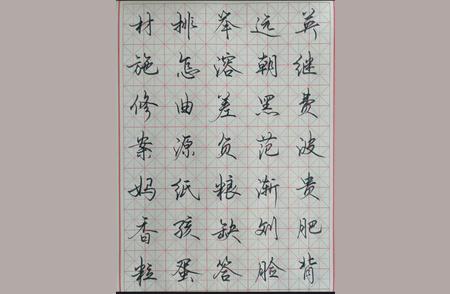 材排举远英
施怎溶朝继
修曲差黑费
案源负范波
妈纸粮渐贵
香孩缺列肥
粒蛋答脸背